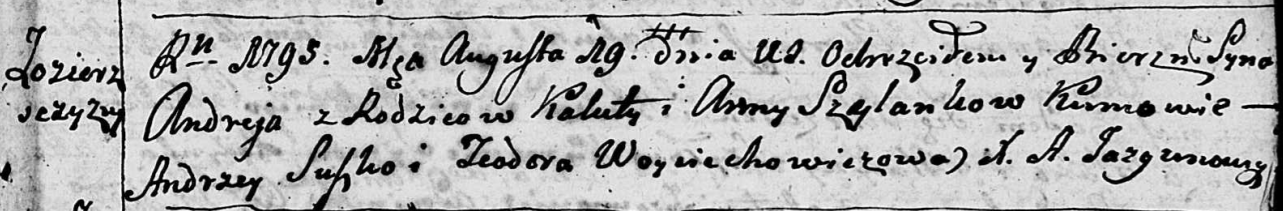 Jozierz
sczyzny
Rn 1795. Msca Augusta 19. dnia Ud. Ochrzciłem y Bierzm. Syna
Andreja z Rodzicow Kaluty i Anny Szylankow Kumowie —
Andrzey Suszko i Teodora Woyciechowiczowa) X. A. Jazgunowicz